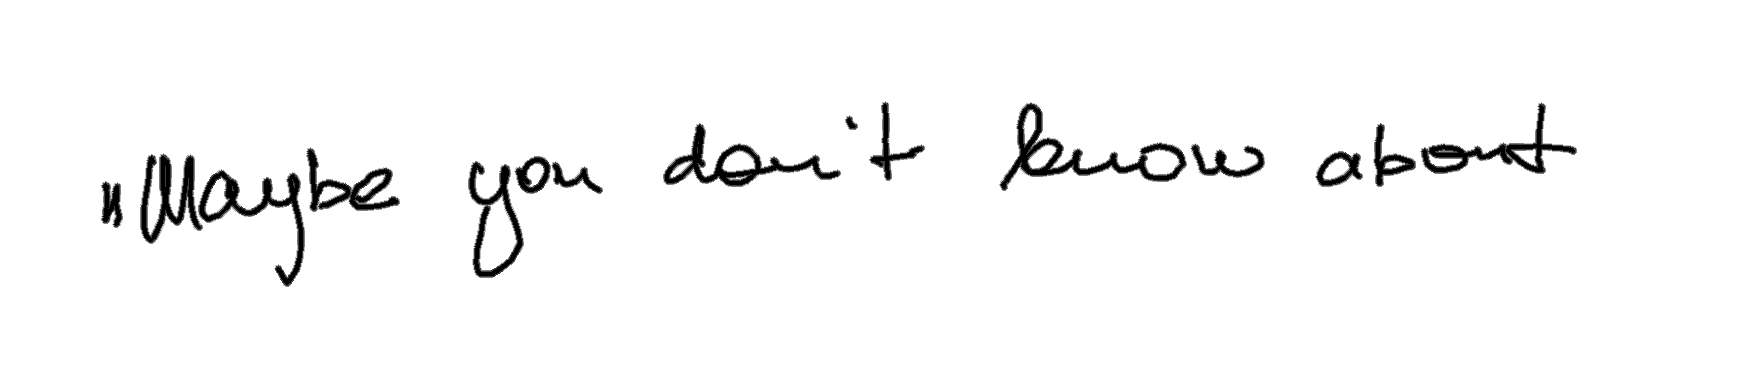 "Maybe you don't know about